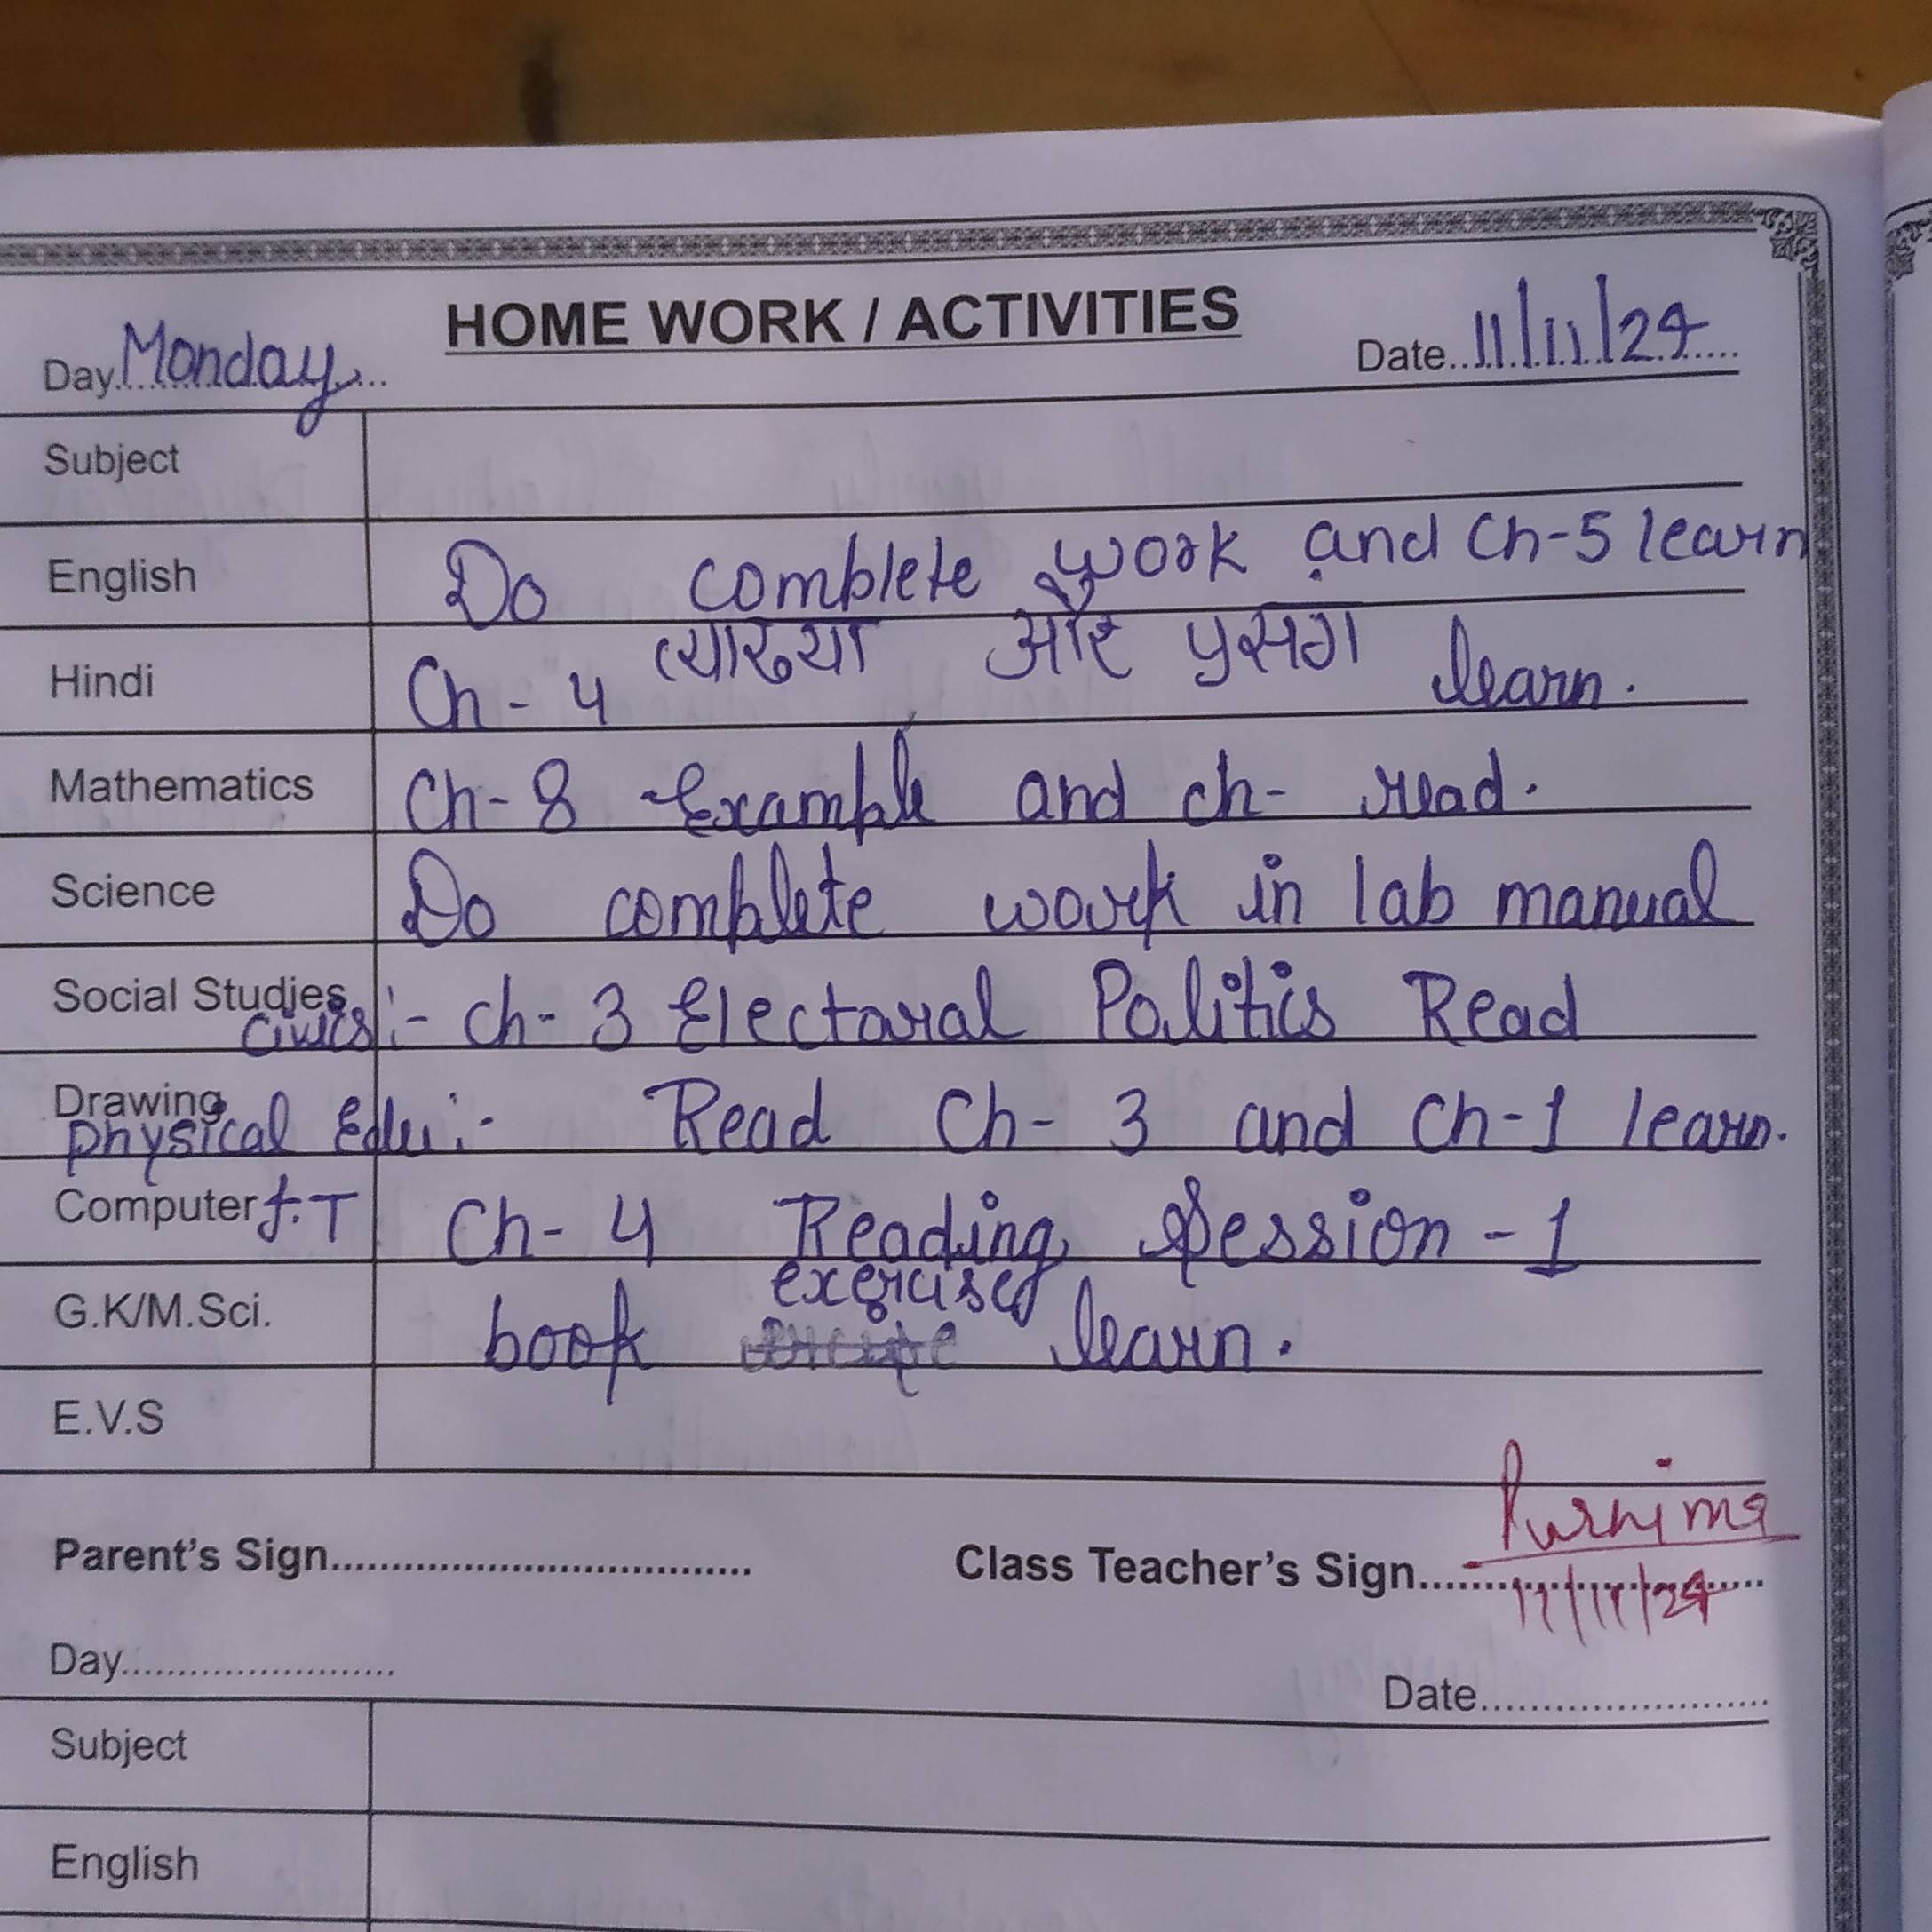 HOME WORK / ACTIVITIES
Day Monday Date 11/11/24
Subject
English Do complete work and Ch-5 learn
Hindi Ch-4 व्याख्या और प्रसंग learn.
Mathematics Ch-8 Example and ch- read.
Science Do complete work in lab manual
Social Studies civics :- ch-3 Electoral Politics Read
Drawing
Physical Edu :- Read Ch-3 and Ch-1 learn.
Computer I.T Ch-4 Reading Session-1
exercised
G.K/M.Sci. book learn.
E.V.S
Purnima
Parent's Sign Class Teacher's Sign
11/11/24
Day
Date
Subject
English